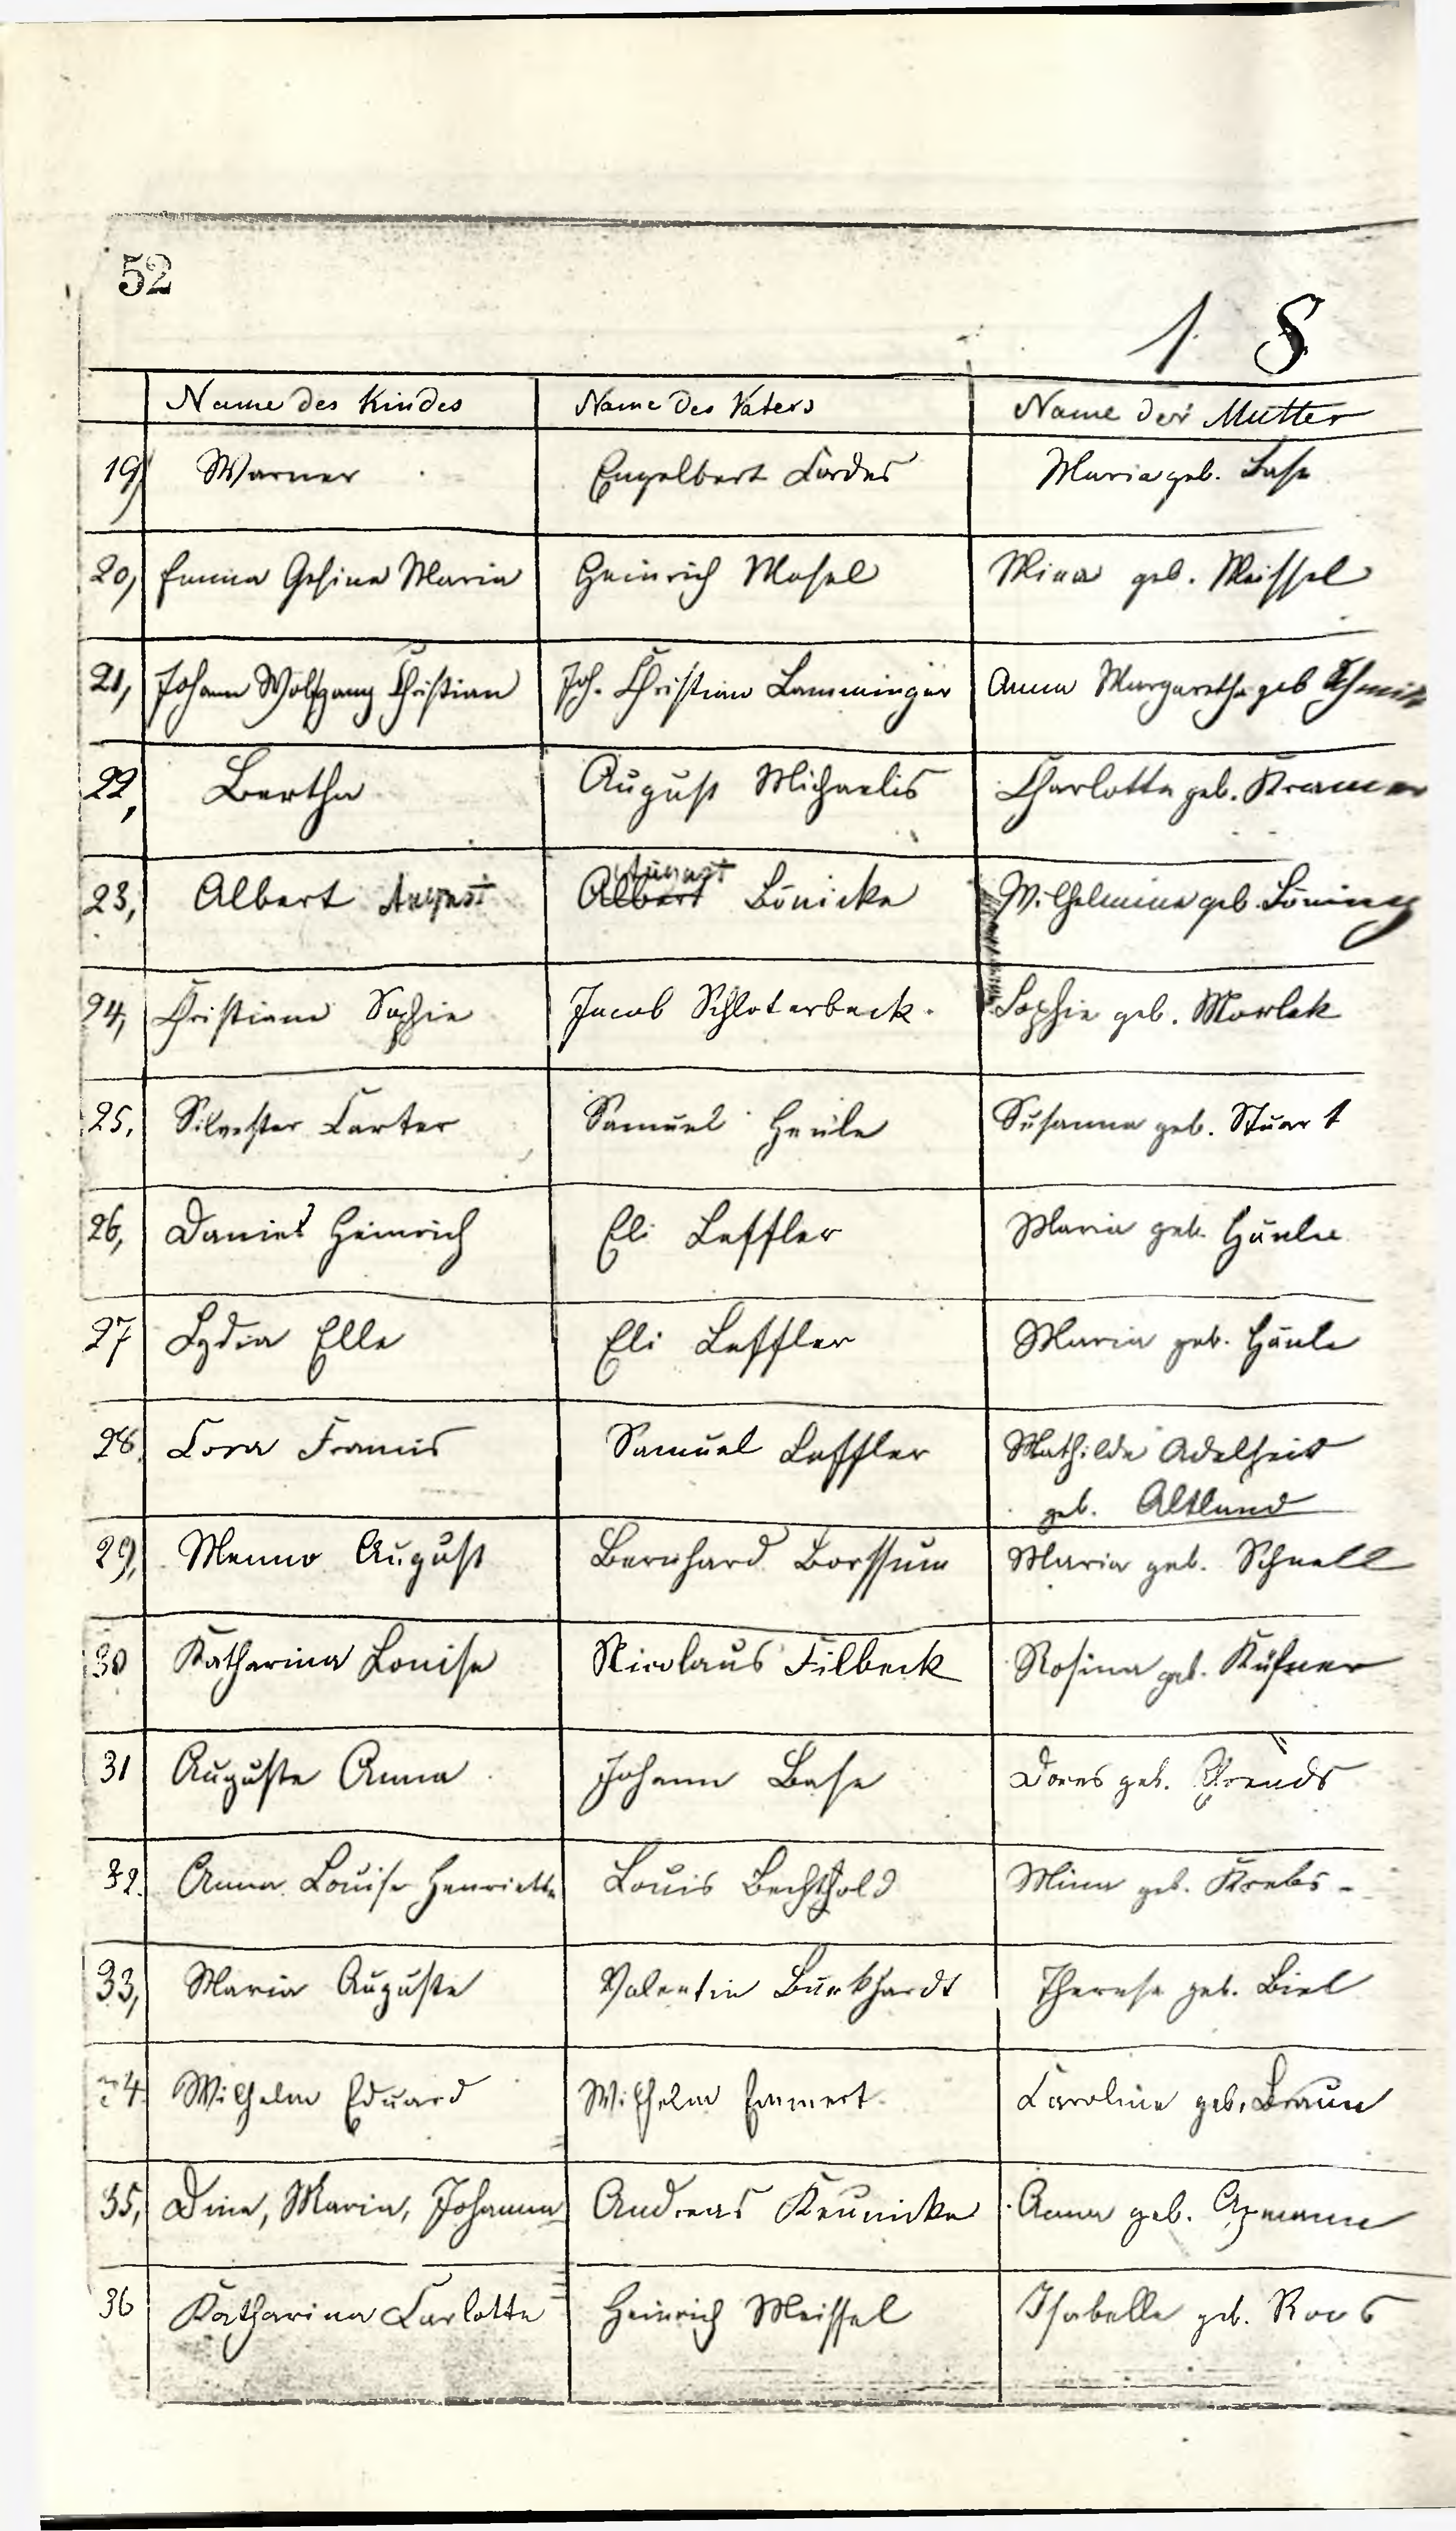 52
1 8
Name des Kindes Name des Vaters Name der Mutter
19, Warner Engelbert Cordes Maria geb. Base
20, Emma Gesina Maria Heinrich Mosel Mina geb. Meissel
21, Johann Wolfgang Christian Joh. Christian Lamminger Anna Margaretha geb
22, Bertha August Michaelis Charlotte geb. Kramer
23, Albert August Albert August Bönicke Wilhelmine geb. Böning
24, Christiane Sophie Jacob Schloterbeck. Sophie geb. Morlok
25, Silvester Carter Samuel Heule Susanna geb. Stuart
26, Daniel Heinrich Eli Leffler Maria geb. Häule
27 Lydia Elle Eli Leffler Maria geb. Häule
28. Cora Francis Samuel Leffler Mathilde Adelheid
geb. Altland
29, Menno August Bernhard Borssum Maria geb. Schnell
30 Katharina Louise Nicolaus Filbeck Rosina geb. Küfner
31 Auguste Anna Johann Base Dores geb.
32. Anna Louise Henriette Louis Bechthold Mina geb. Krebs -
33, Maria Auguste Valentin Burkhardt Therese geb. Biel
34. Wilhelm Eduard Wilhelm Emmert Caroline geb. Braun
35, Dina, Maria, Johanna Andreas Keunicke Anna geb.
36 Katharina Carlotte Heinrich Meissel Isabelle geb. Roos